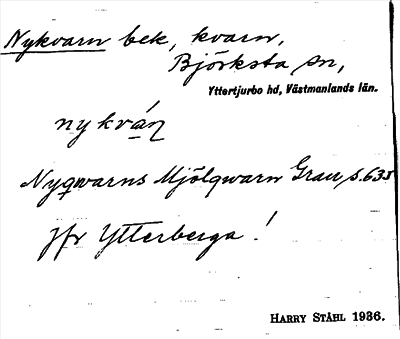 Nykvarn bek, kvarn,
Björksta sn,
Yttertjurbo hd, Västmanlands län.
nykván
Nyqwarns Mjölqwarn Grau, s. 635
jfr Ytterberga!
HARRY STÅHL 1936.